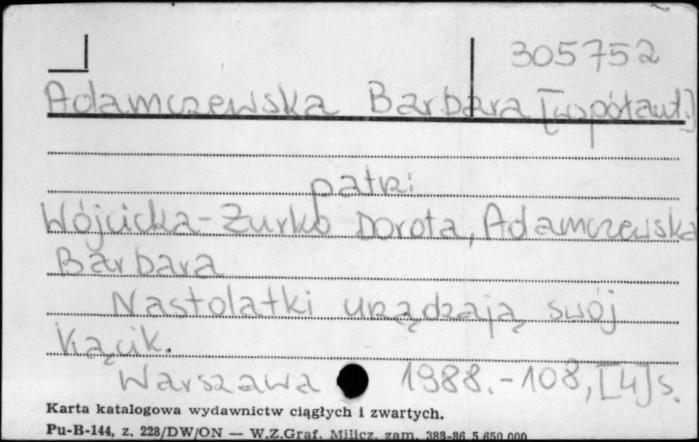 305752
Adamczewska Barbara [współaut.]
patrz:
Wójcicka-Żurko Dorota, Adamczewska
Barbara
Nastolatki urządzają swój
kącik.
Warszawa 1988.-108,[4]s.
Karta katalogowa wydawnictw ciągłych i zwartych.
Pu-B-144, z. 228/DW/ON — W.Z.Graf. Milicz, zam. 388-86 5 650 000